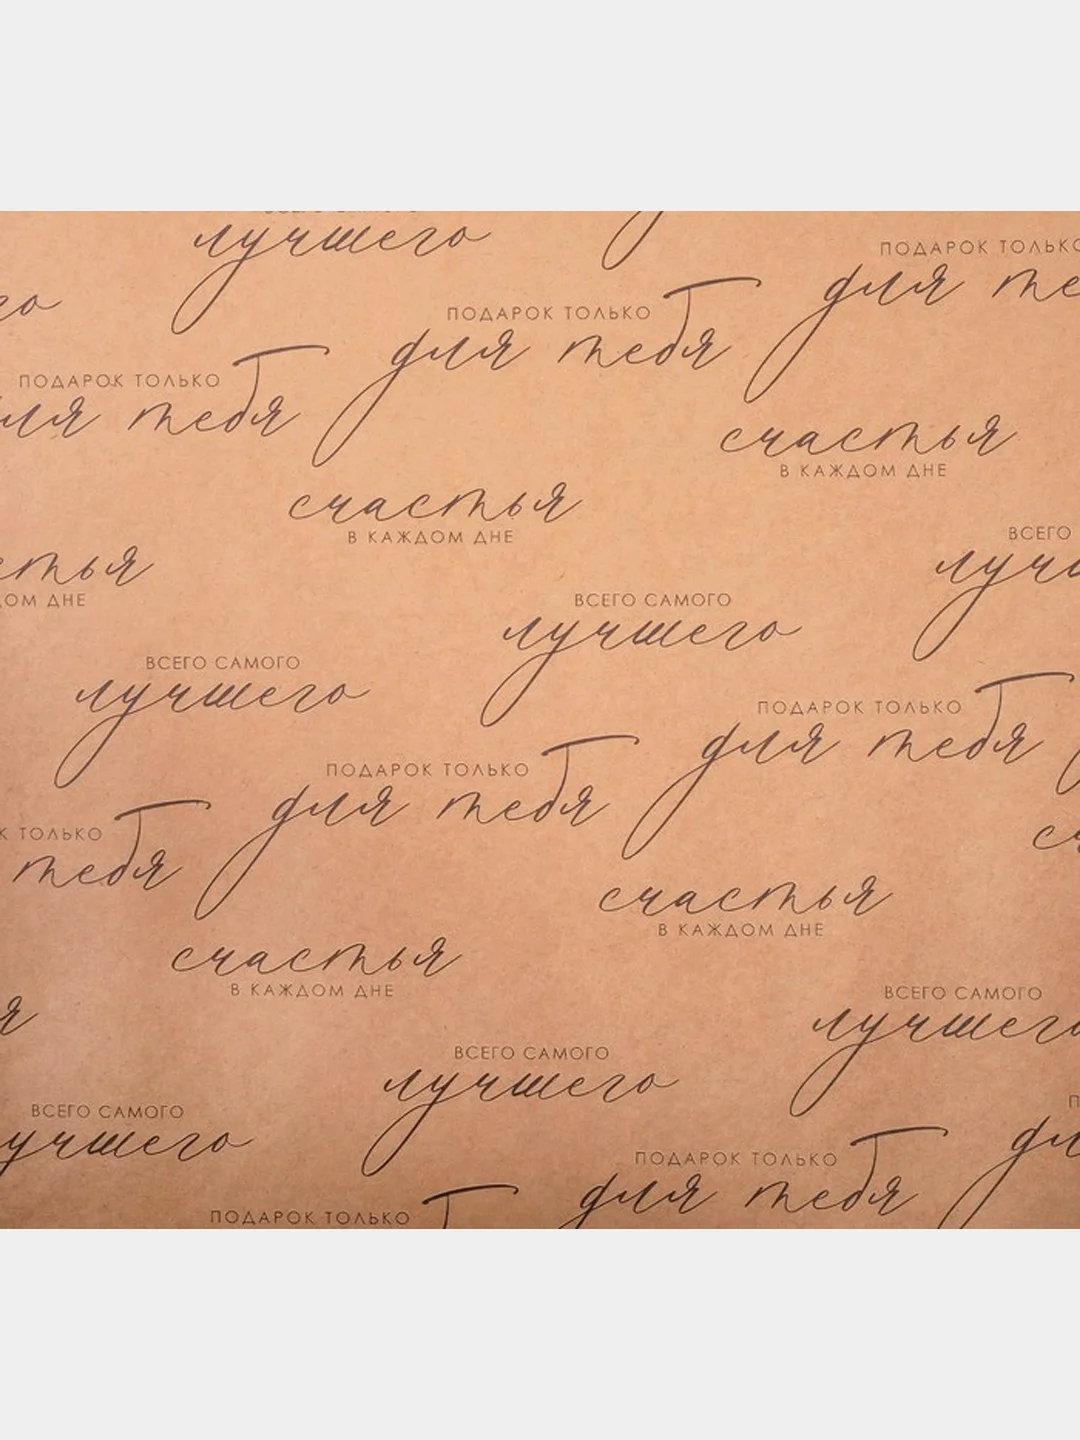 лучшего
ПОДАРОК ТОЛЬКО
для те
ПОДАРОК ТОЛЬКО
для тебя
ПОДАРОК ТОЛЬКО
для тебя
счастья
В КАЖДОМ ДНЕ
счастья
В КАЖДОМ ДНЕ
стья
ДОМ ДНЕ
ВСЕГО
лучш
ВСЕГО САМОГО
лучшего
ВСЕГО САМОГО
лучшего
ПОДАРОК ТОЛЬКО
для тебя
ПОДАРОК ТОЛЬКО
для тебя
К ТОЛЬКО
тебя
сч
счастья
В КАЖДОМ ДНЕ
счастья
В КАЖДОМ ДНЕ
я
ВСЕГО САМОГО
лучшего
ВСЕГО САМОГО
лучшего
ВСЕГО САМОГО
лучшего
П
дл
ПОДАРОК ТОЛЬКО
для тебя
ПОДАРОК ТОЛЬКО